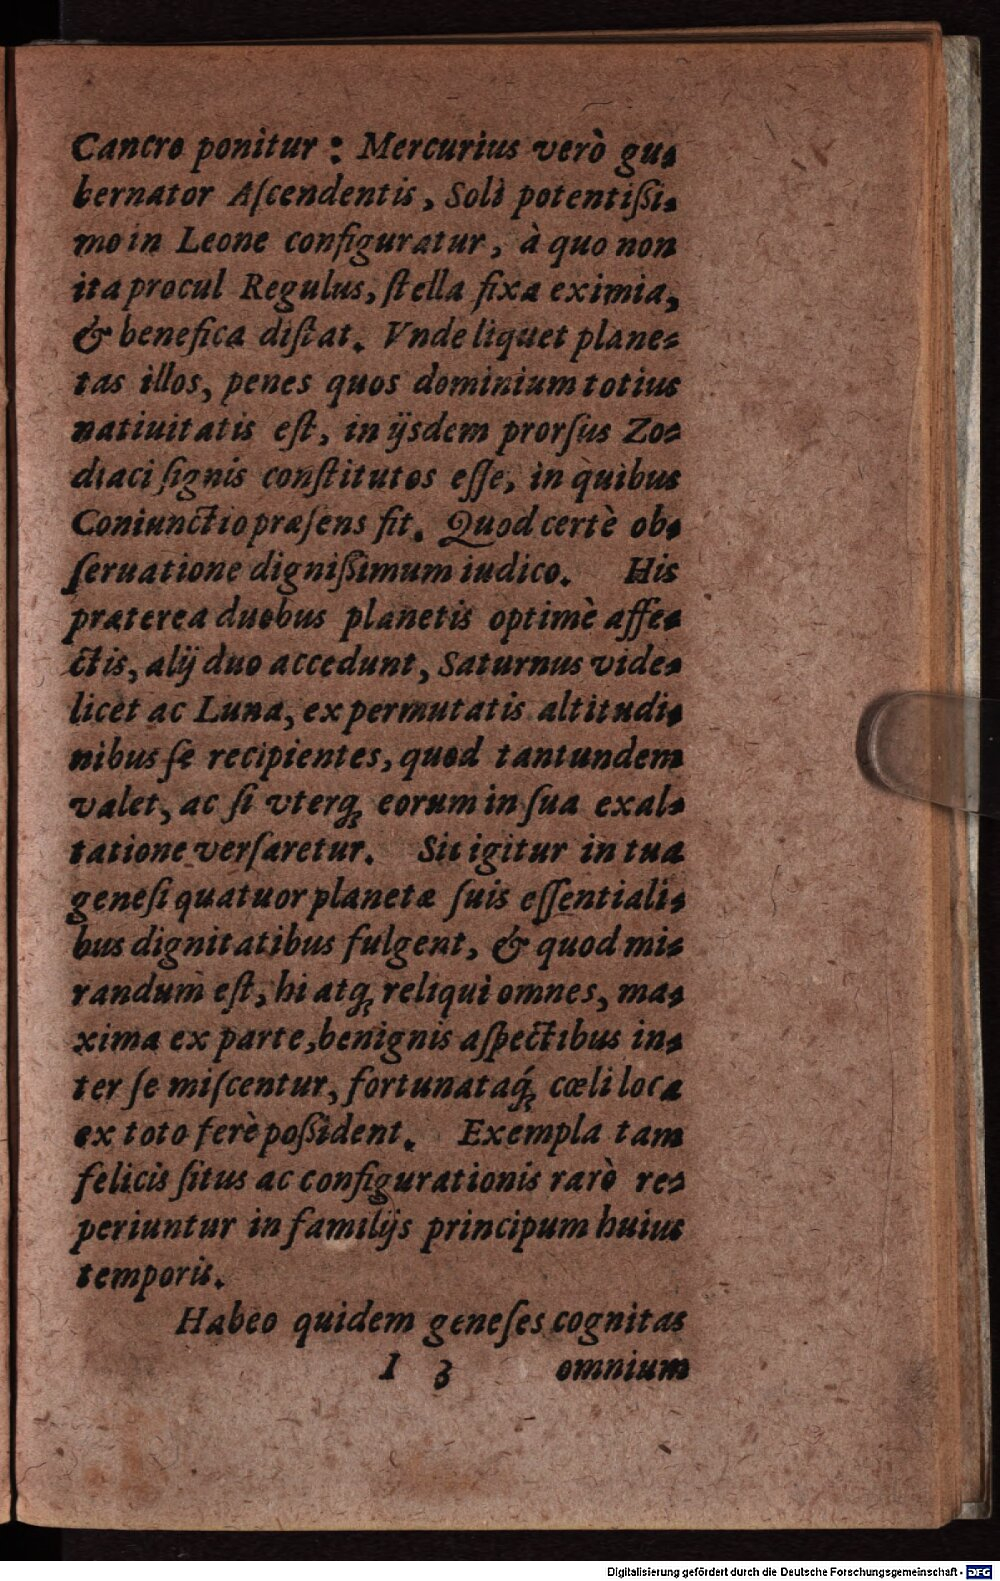 Cancro ponitur : Mercurius verò gu-
bernator Aſcendentis, Soli potentiſsi-
mo in Leone configuratur, à quo non
ita procul Regulus, ſtella fixa eximia,
& benefica diſtat. Vnde liquet plane-
tas illos, penes quos dominium totius
natiuitatis eſt, in ijsdem prorſus Zo-
diaci ſignis conſtitutos eſſe, in quibus
Coniunctio præſens fit. Quod certè ob-
ſeruatione digniſsimum iudico. His
præterea duobus planetis optimè affe-
ctis, alij duo accedunt, Saturnus vide-
licet ac Luna, ex permutatis altitudi-
nibus ſe recipientes, quod tantundem
valet, ac ſi vterq; eorum in ſua exal-
tatione verſaretur. Sic igitur in tua
geneſi quatuor planetæ ſuis eſſentiali-
bus dignitatibus fulgent, & quod mi-
randum eſt, hi atq; reliqui omnes, ma-
xima ex parte, benignis aſpectibus in-
ter ſe miſcentur, fortunataq́; cœli loca
ex toto ferè poſsident. Exempla tam
felicis ſitus ac configurationis rarò re-
periuntur in familijs principum huius
temporis.
Habeo quidem geneſes cognitas
I 3 omnium
Digitalisierung gefördert durch die Deutsche Forschungsgemeinschaft - DFG